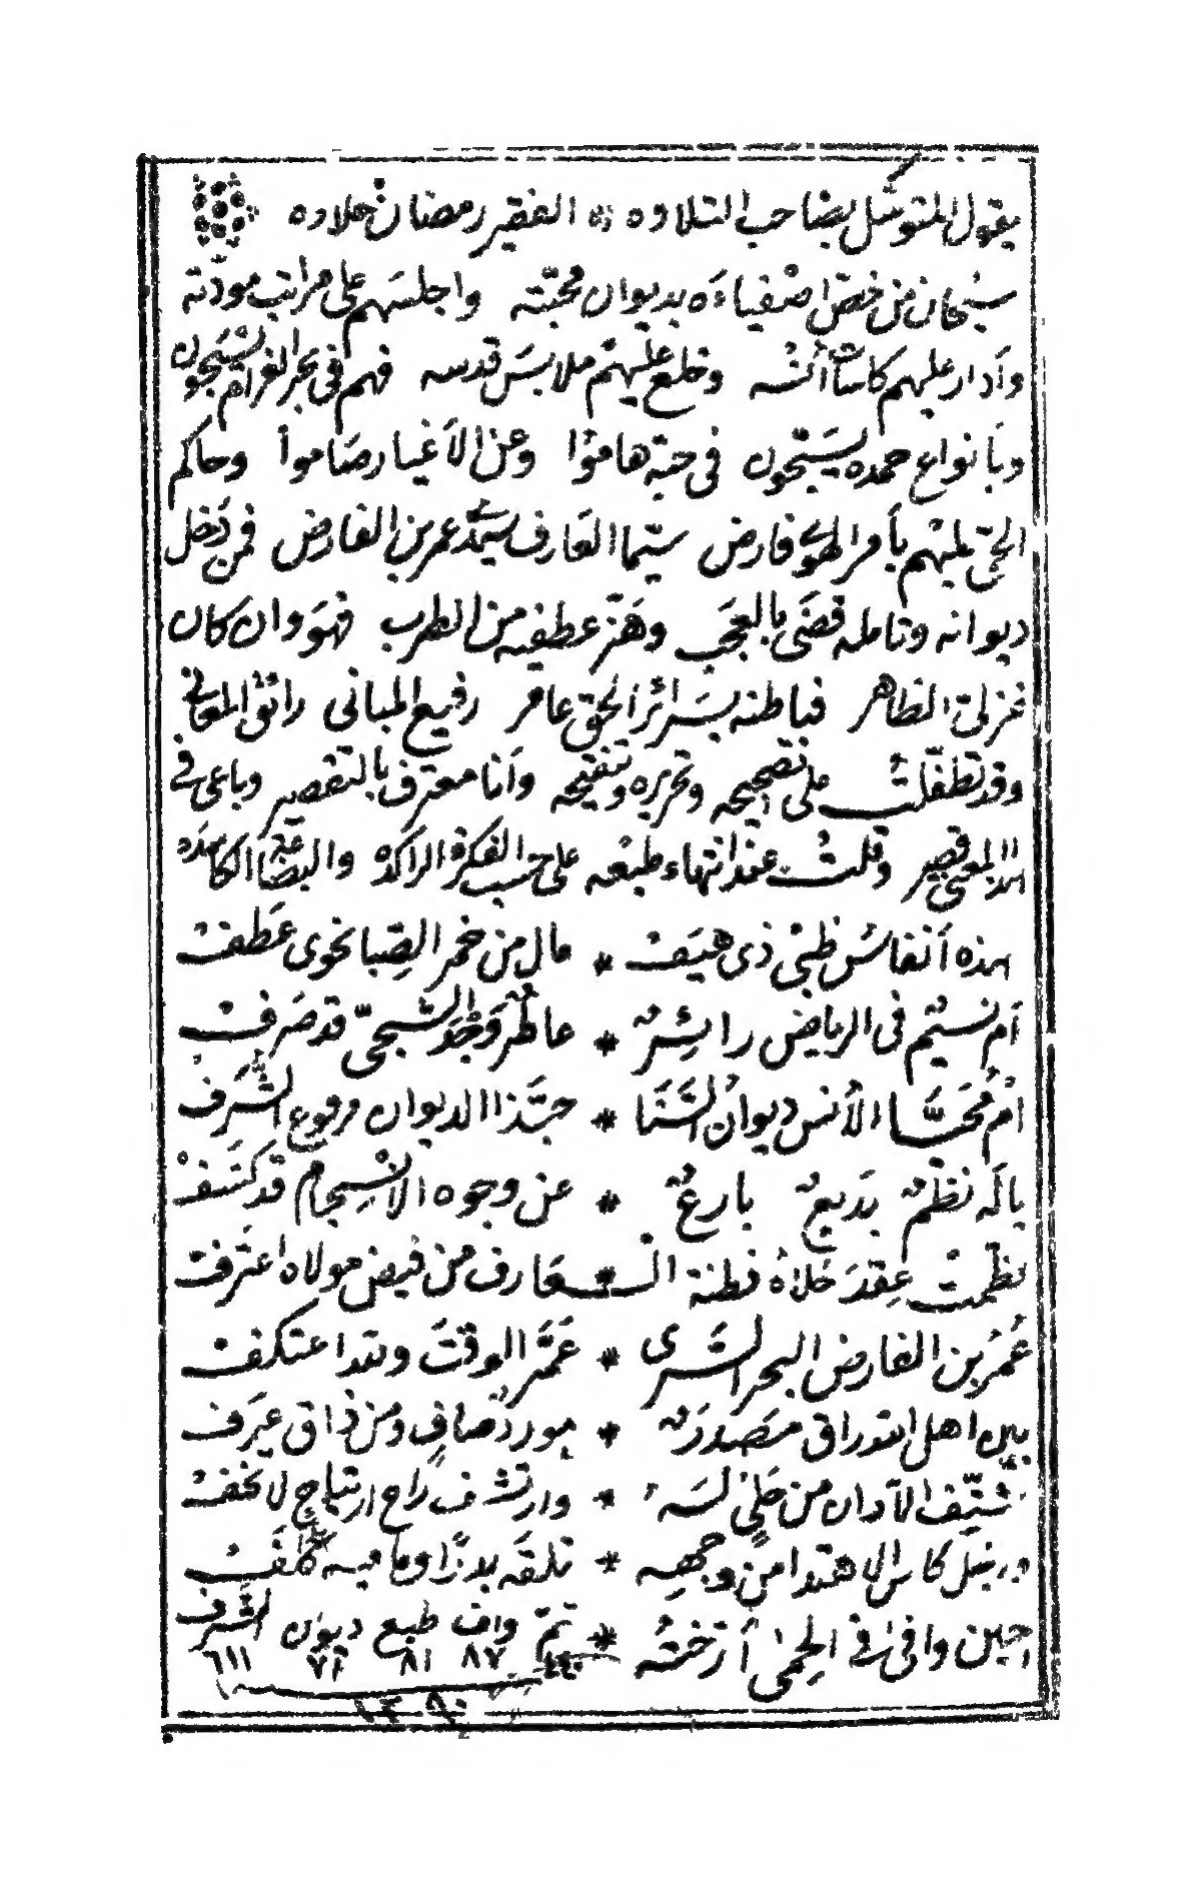 يقول المتوسل بصاحب التلاوه ۞ الفقير رمضان حلاوه
سبحان من خص اصفياءه بديوان محبته واجلسهم على مراتب مودته
وأدار عليهم كاسات أنسه وخلع عليهم ملابس قدسه فهم في بحر الغرام يسبحون
وبأنواع حمده يسبحون في حبه هاموا وعن الأغيار صاموا وحاكم
الحق عليهم بأمر الهوى فارض سيما العارف سيدى عمر بن الفارض فمن دخل
ديوانه وتامله قضى بالعجب وهز عطفيه من الطرب فهو وان كان
غزلي الظاهر فباطنه بسرائر الحق عامر رفيع المباني رائق المعاني
وقد تطفلت على تصحيحه وتحريره وتنقيحه وأنا معترف بالتقصير وباعى في
قصير وقلت عند انتهاء طبعه على حسب الفكرة الراكده والبضاعة الكاسده
هذه أنفاس ظبي ذى هيف * مال من خمر الصبا نحوى عطف
أم نسيم في الرياض رائر * عاطر وجد الشجي قد صرف
أم محيا الأنس ديوان السنا * حبذا الديوان مرفوع الشرف
ياله نظم بديع بارع * عن وجوه الانسجام قد كشف
نظمت عقد حلاه فطنة الـ*ـعارف من فيض مولاه اغترف
عمر بن الفارض البحر السرى * عمر الوقت وقد اعتكف
بين اهل الذوق مصدر * مورد صاف ومن ذاق عرف
شنف الآذان من حلى له * وارتشف راح ارتياح لا تخف
كاس الاهتدا من وجهه * تلقه بدرا وما فيه كلف
حين وافى في الحمى أرخته * تم واف طبع ديوان الشرف
٤٤٠ ٨٧ ٨١ ٧١ ٦١١
١٢٩٠